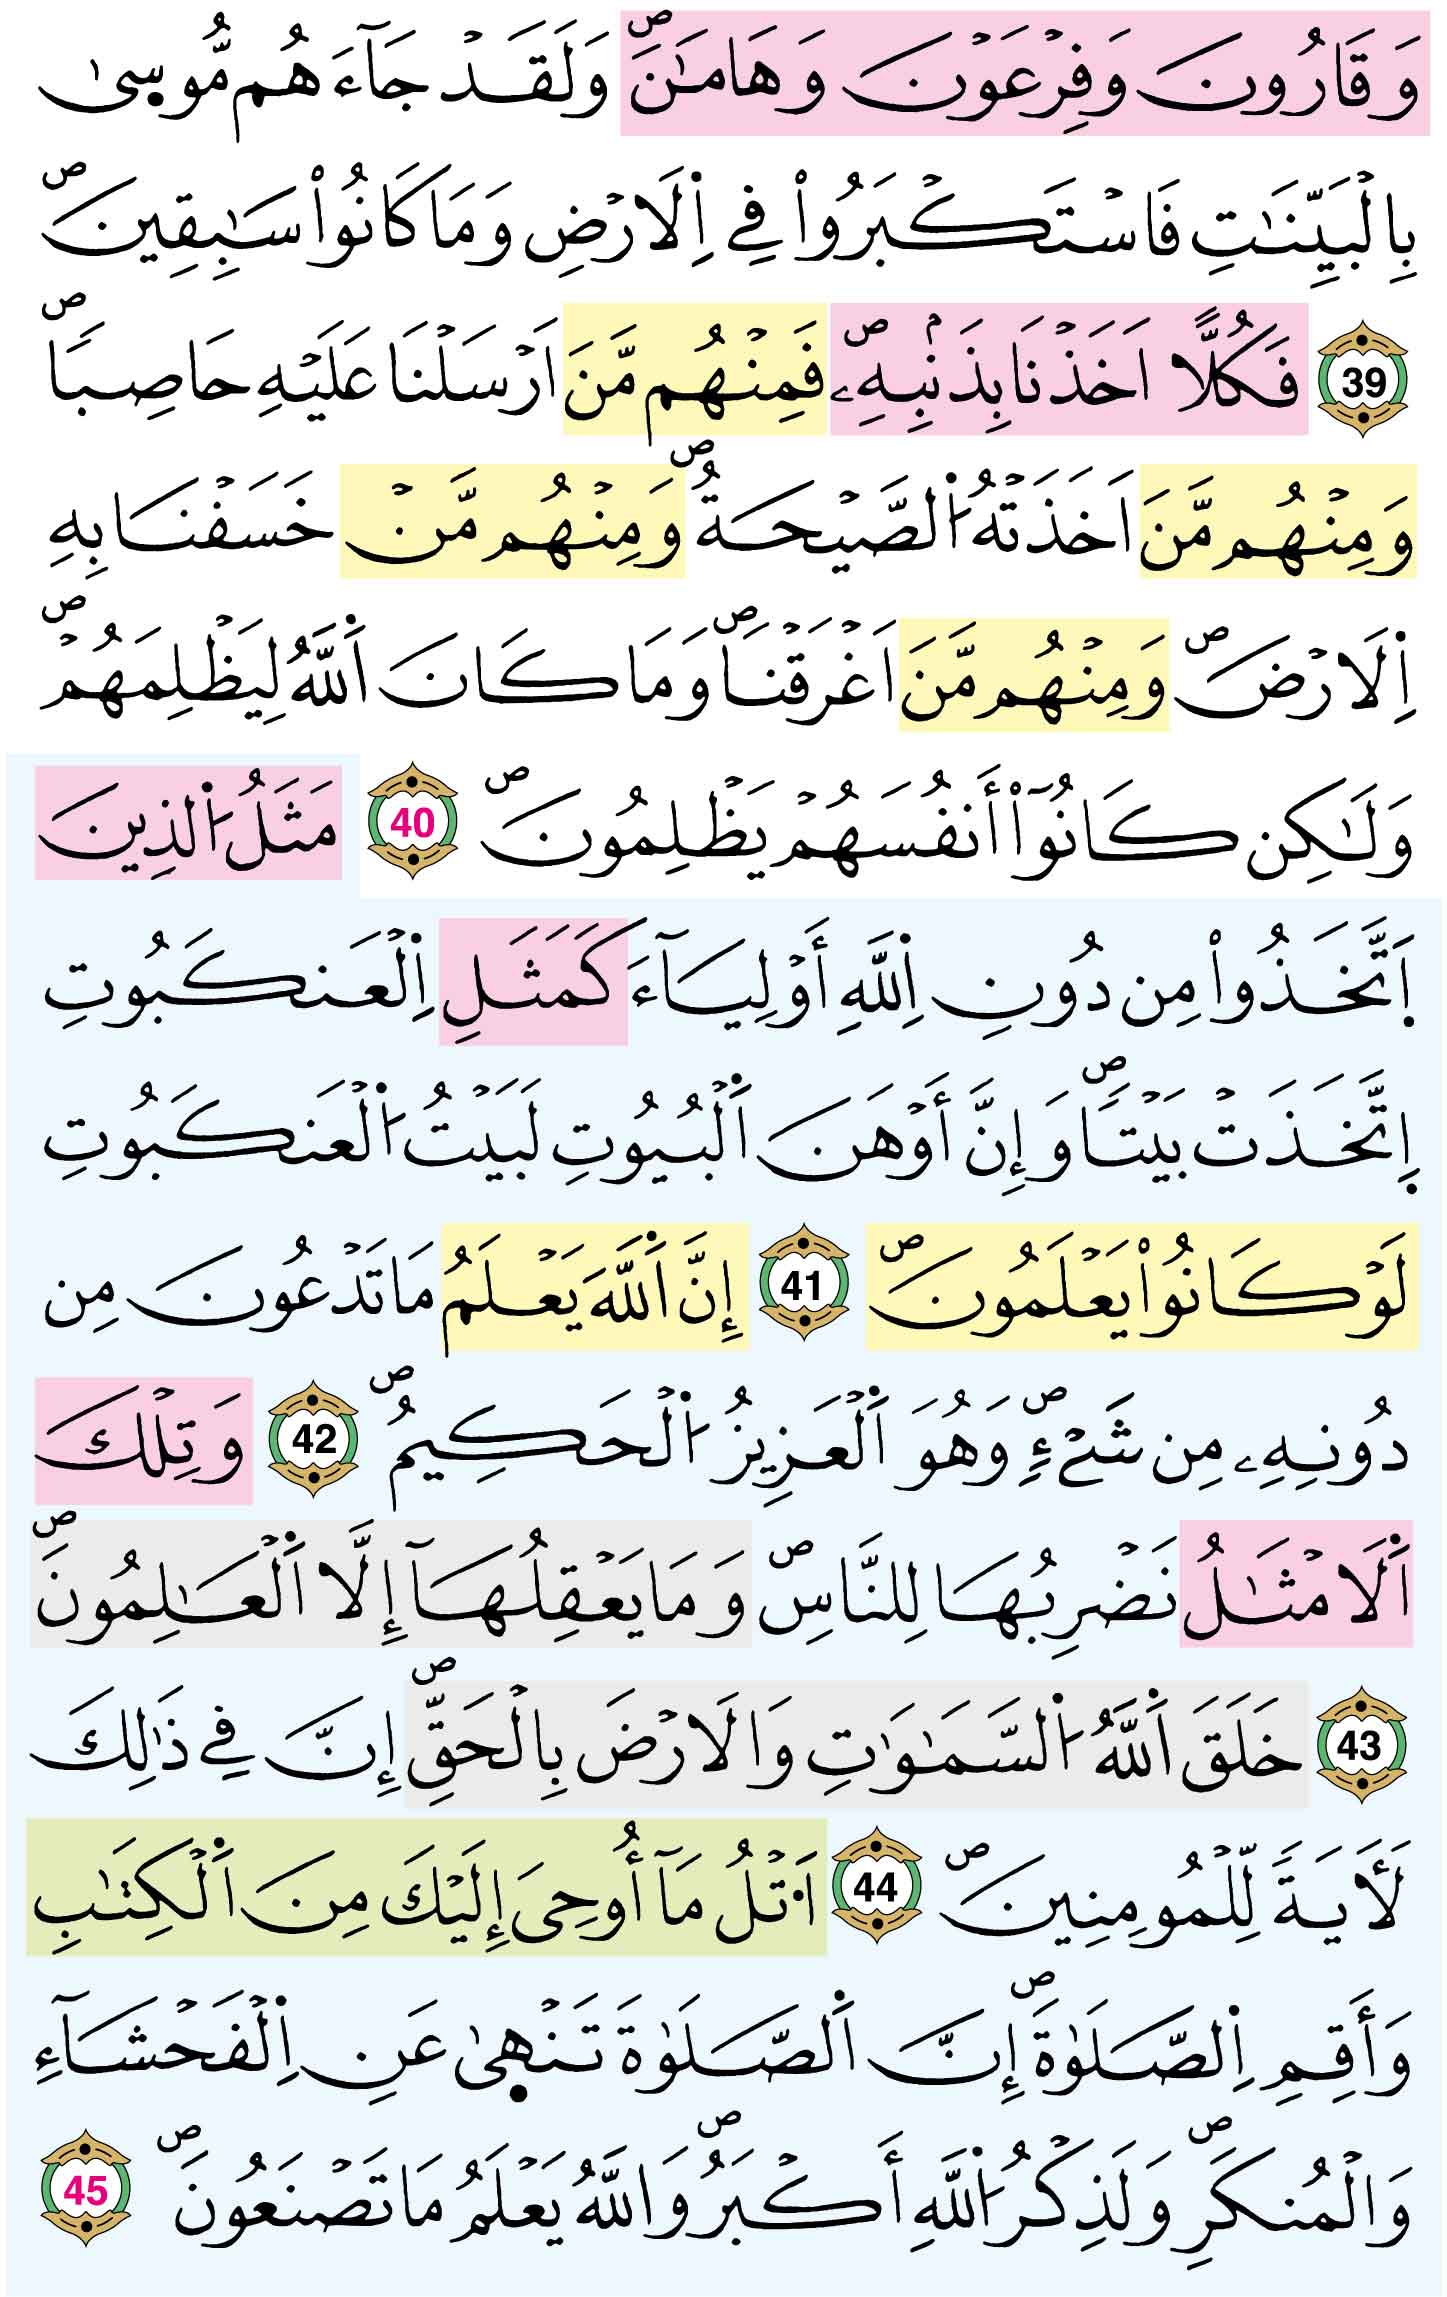 وَقَٰرُونَ وَفِرْعَوْنَ وَهَٰمَٰنَۖ وَلَقَدْ جَآءَهُم مُّوسِىٰ
بِالْبَيِّنَٰتِ فَاسْتَكْبَرُواْ فِے اِ۬لَارْضِ وَمَا كَانُواْ سَٰبِقِينَۖ
39 فَكُلّاً اَخَذْنَا بِذَنۢبِهِۦۖ فَمِنْهُم مَّنَ اَرْسَلْنَا عَلَيْهِ حَاصِباًۖ
وَمِنْهُم مَّنَ اَخَذَتْهُ اُ۬لصَّيْحَةُۖ وَمِنْهُم مَّنْ خَسَفْنَا بِهِ
اِ۬لَارْضَۖ وَمِنْهُم مَّنَ اَغْرَقْنَاۖ وَمَا كَانَ اَ۬للَّهُ لِيَظْلِمَهُمْۖ
وَلَٰكِن كَانُوٓاْ أَنفُسَهُمْ يَظْلِمُونَۖ 40 مَثَلُ اُ۬لذِينَ
اَ۪تَّخَذُواْ مِن دُونِ اِ۬للَّهِ أَوْلِيَآءَ كَمَثَلِ اِ۬لْعَنكَبُوتِ
اِ۪تَّخَذَتْ بَيْتاًۖ وَإِنَّ أَوْهَنَ اَ۬لْبُيُوتِ لَبَيْتُ اُ۬لْعَنكَبُوتِ
لَوْ كَانُواْ يَعْلَمُونَۖ 41 إِنَّ اَ۬للَّهَ يَعْلَمُ مَا تَدْعُونَ مِن
دُونِهِۦ مِن شَےْءٖۖ وَهُوَ اَ۬لْعَزِيزُ اُ۬لْحَكِيمُۖ 42 وَتِلْكَ
اَ۬لَامْثَٰلُ نَضْرِبُهَا لِلنَّاسِۖ وَمَا يَعْقِلُهَآ إِلَّا اَ۬لْعَٰلِمُونَۖ
43 خَلَقَ اَ۬للَّهُ اُ۬لسَّمَٰوَٰتِ وَالَارْضَ بِالْحَقِّۖ إِنَّ فِے ذَٰلِكَ
لَأٓيَةً لِّلْمُومِنِينَۖ 44 اَ۟تْلُ مَآ أُوحِىَ إِلَيْكَ مِنَ اَ۬لْكِتَٰبِ
وَأَقِمِ اِ۬لصَّلَوٰةَۖ إِنَّ اَ۬لصَّلَوٰةَ تَنْهِىٰ عَنِ اِ۬لْفَحْشَآءِ
وَالْمُنكَرِۖ وَلَذِكْرُ اُ۬للَّهِ أَكْبَرُۖ وَاللَّهُ يَعْلَمُ مَا تَصْنَعُونَۖ 45